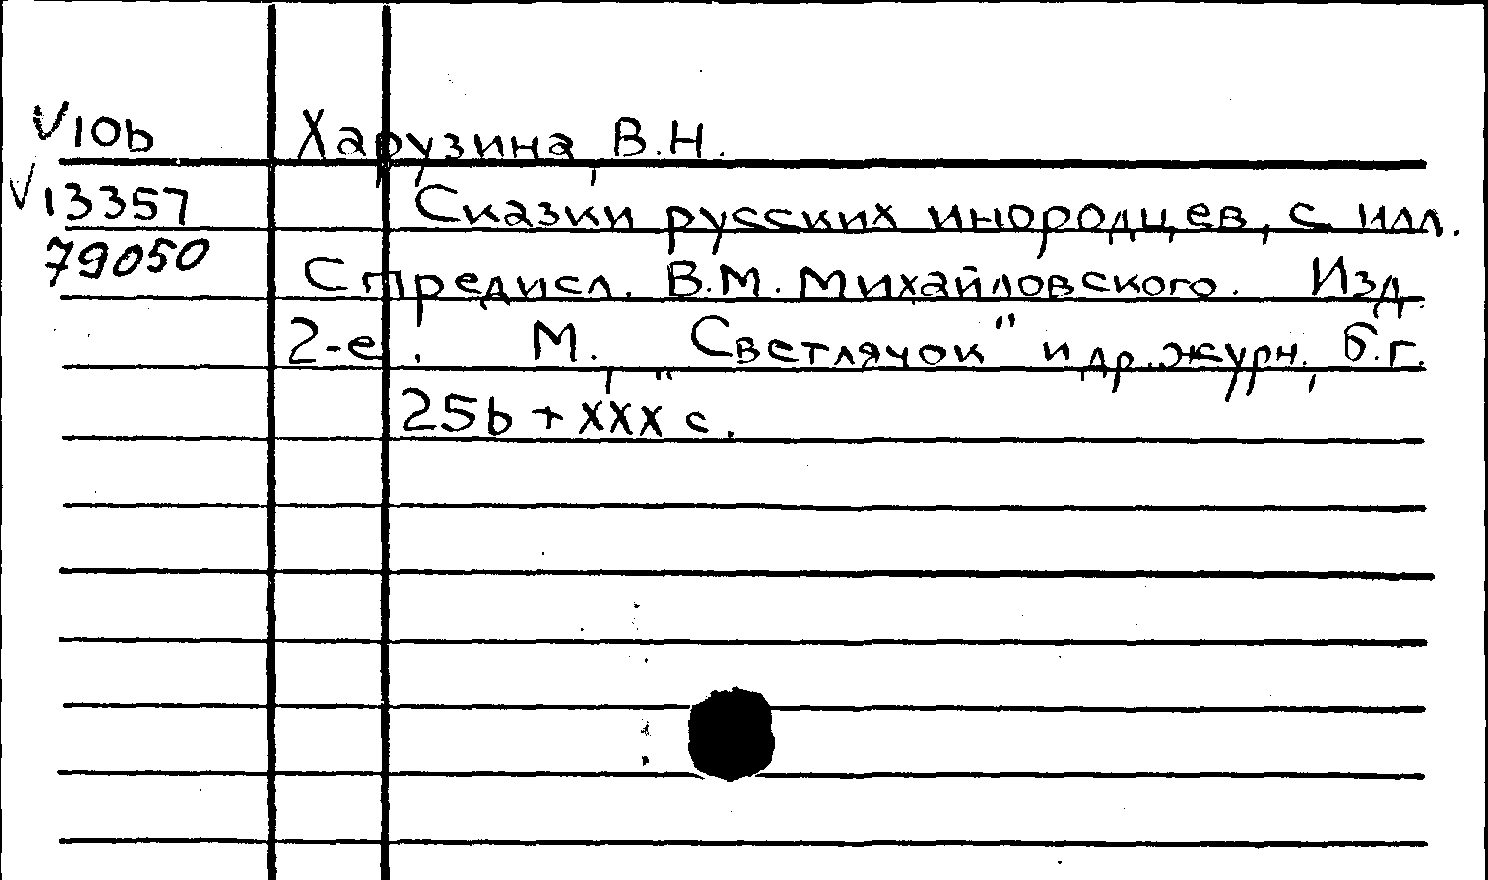 V10b
Харузина, В.Н.
V13357
Сказки русских инородцев, с илл.
79050
С предисл. В.М. Михайловского. Изд.
2-е. М., "Светлячок" и др. журн., б.г.
256 + XXX с.